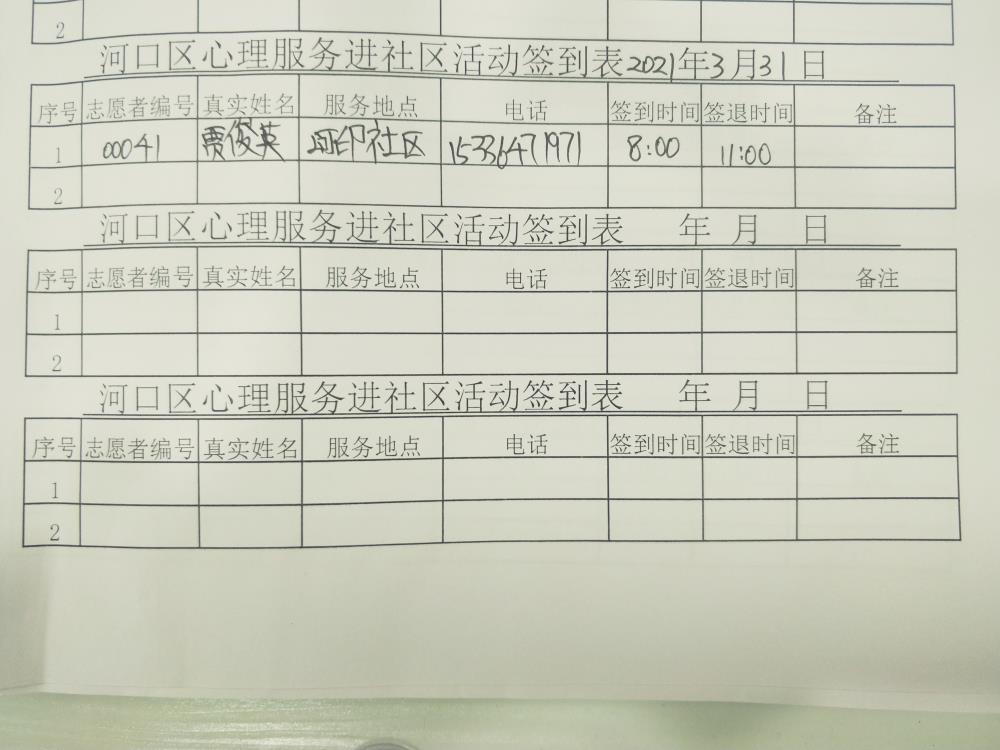 2
河口区心理服务进社区活动签到表2021年3月31日
序号 志愿者编号 真实姓名 服务地点 电话 签到时间 签退时间 备注
1 00041 贾俊英 社区 15336471971 8:00 11:00
2
河口区心理服务进社区活动签到表 年 月 日
序号 志愿者编号 真实姓名 服务地点 电话 签到时间 签退时间 备注
1
2
河口区心理服务进社区活动签到表 年 月 日
序号 志愿者编号 真实姓名 服务地点 电话 签到时间 签退时间 备注
1
2